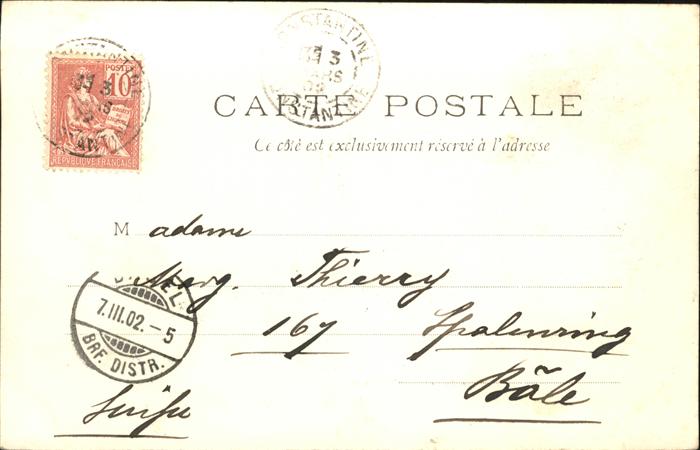 POSTES
10
RÉPUBLIQUE FRANÇAISE
CONSTANTINE
3
MARS
CONSTANTINE
CARTE POSTALE
Ce côté est exclusivement réservé à l'adresse
Madame
Marg. Thierry
167 Spalenring
Bâle
Suisse
BASEL
7.III.02.-5
BRF. DISTR.